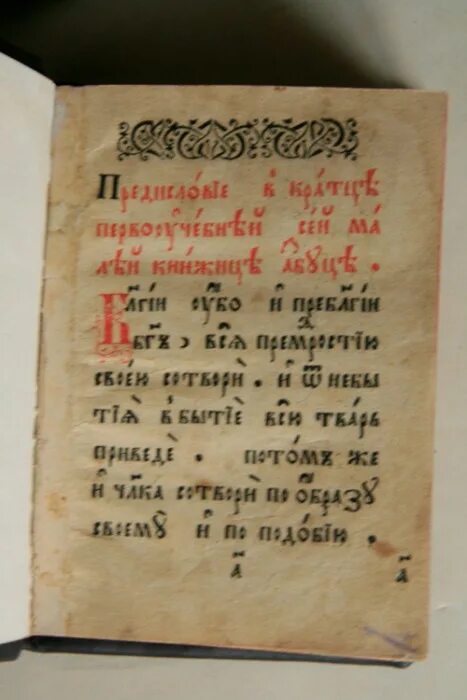 Предисло́вїе в кра́тцѣ
первоꙋче́бнѣй се́й ма́
лѣй кни́жицѣ а҆́збꙋцѣ .
Бл҃гі́й ᲂу҆́бѡ и҆ пребл҃гі́й
бг҃ъ , всѧ̀ премⷣростїю
свое́ю сотворѝ . и҆ ѿ небы
тїѧ̀ в бытїѐ всю̀ тва́рь
приведѐ . пото́мъ же
и҆ чл҃ка сотворѝ по ѻ҆́бразꙋ
своемꙋ̀ и҆ по подо́бїю .
а҃
а҃